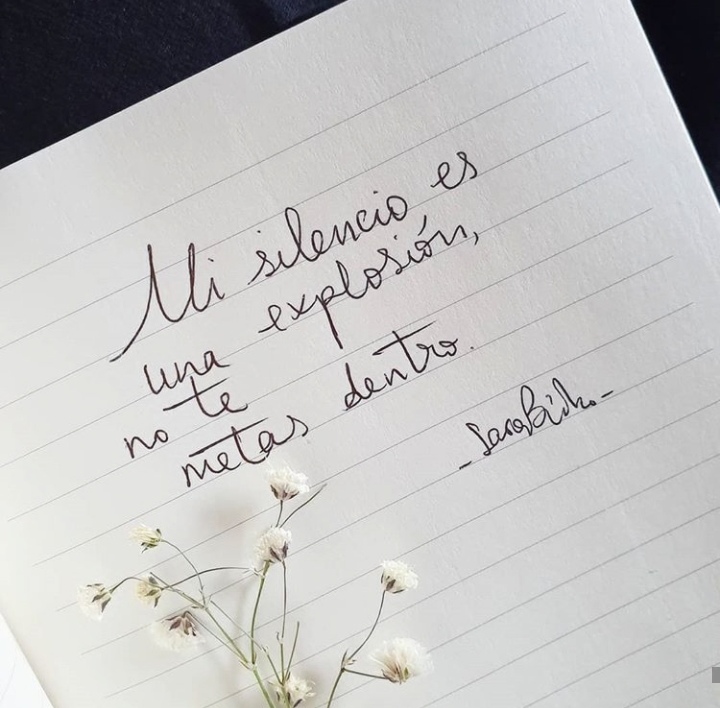 Mi silencio es
una explosión,
no te
metas dentro.